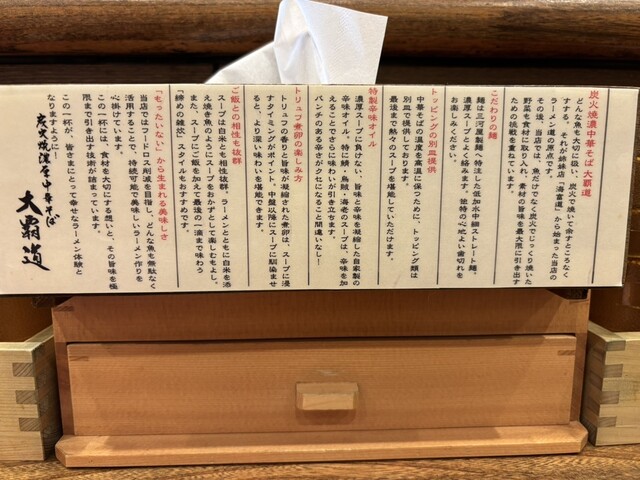 炭火焼濃中華そば 大覇道
どんな魚も大切に扱い、炭火で焼いて余すところなく
すする。それが姉妹店「海富道」から始まった当店の
ラーメン道の原点です。
その後、当店では、魚だけでなく炭火でじっくり焼いた
野菜も食材に取り入れ、素材の旨味を最大限に引き出す
ための挑戦を重ねています。
こだわりの麺
麺は三河屋製麺へ特注した低加水中細ストレート麺。
濃厚スープとよく絡みます。独特の心地よい歯切れを
お楽しみください。
トッピングの別皿提供
中華そばの温度を高温に保つために、トッピング類は
別皿で提供しております。
最後まで熱々のスープを堪能していただけます。
特製辛味オイル
濃厚スープに負けない、旨味と辛味を凝縮した自家製の
辛味オイル。特に鯖・烏賊・海老のスープは、辛味を加
えることでさらに味わいが引き立ちます。
パンチのある辛さがクセになること間違いなし!
トリュフ煮卵の楽しみ方
トリュフの香りと旨味が凝縮された煮卵は、スープに浸
すタイミングがポイント。中盤以降にスープに馴染ませ
ると、より深い味わいを堪能できます。
ご飯との相性も抜群
スープは白米とも相性抜群。ラーメンとともに白米を添
え焼き魚のようにスープをおかずとして楽しむもよし。
また、スープにご飯を加えて最後の一滴まで味わう
「締めの雑炊」スタイルもおすすめです。
「もったいない」から生まれる美味しさ
当店ではフードロス削減を目指し、どんな魚も無駄なく
活用することで、持続可能で美味しいラーメン作りを
心掛けています。
この一杯には、食材を大切にする想いと、その旨味を極
限まで引き出す技術が詰まっています。
この一杯が、皆さまにとって幸せなラーメン体験と
なりますように!
炭火焼濃厚中華そば
大覇道